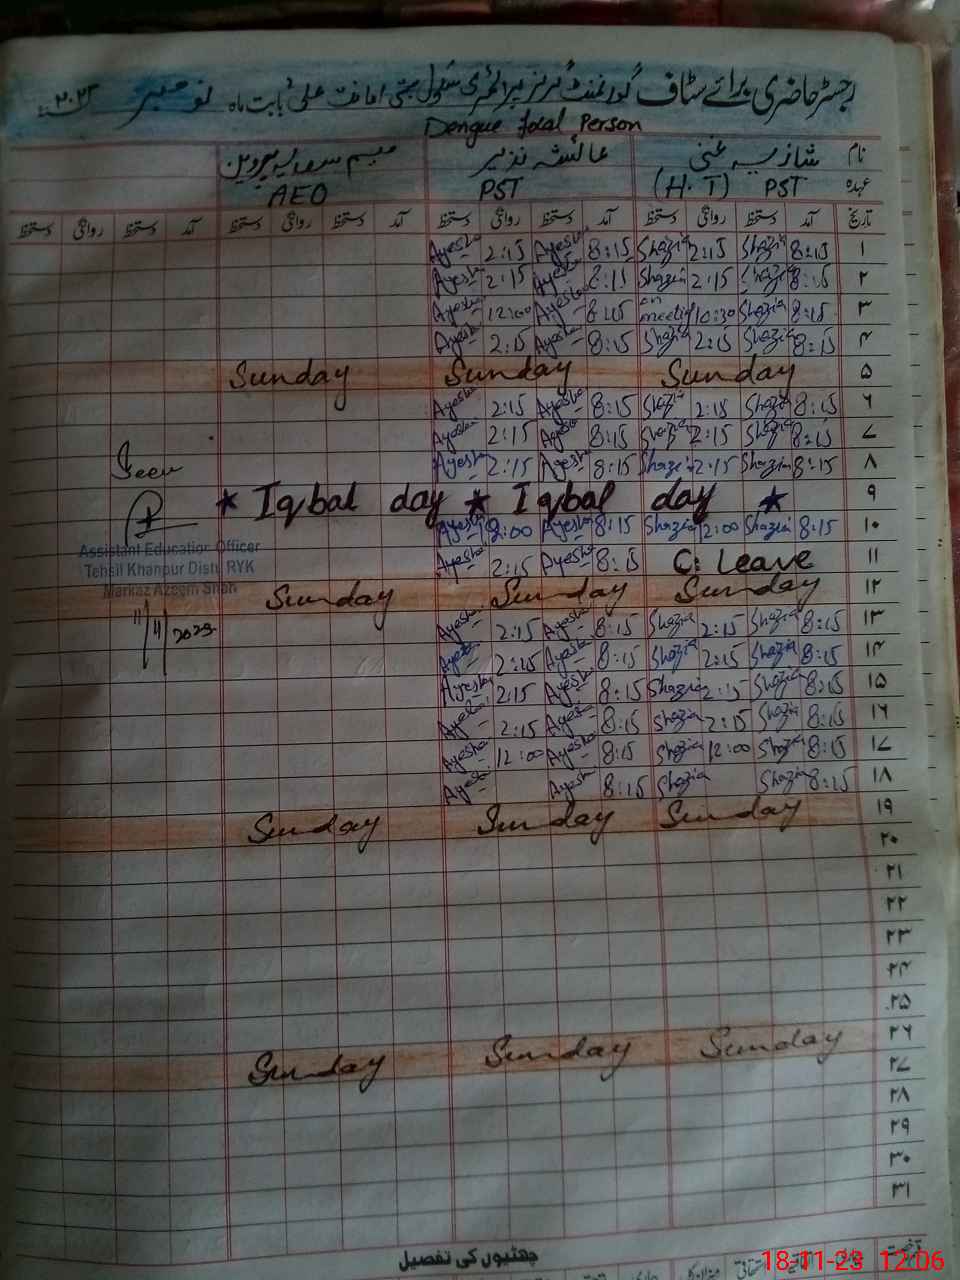 رجسٹر حاضری برائے سٹاف گورنمنٹ گرلز پرائمری سکول بستی امانت علی بابت ماہ نومبر ۲۰۲۳
Dengue focal Person
نام شازیہ غنی عائشہ نذیر میم سعدیہ پروین
عہدہ PST (H.T) PST AEO
تاریخ آمد دستخط روانگی دستخط آمد دستخط روانگی دستخط آمد دستخط روانگی دستخط آمد دستخط روانگی دستخط
۱ 8:15 Shazia 2:15 Shazia 8:15 Ayesha 2:15 Ayesha
۲ 8:15 Shazia 2:15 Shazia 8:15 Ayesha 2:15 Ayesha
۳ 8:15 Shazia 10:30 on meeting 8:15 Ayesha 12:00 Ayesha
۴ 8:15 Shazia 2:15 Shazia 8:15 Ayesha 2:15 Ayesha
۵ Sunday Sunday Sunday
۶ 8:15 Shazia 2:15 Shazia 8:15 Ayesha 2:15 Ayesha
۷ 8:15 Shazia 2:15 Shazia 8:15 Ayesha 2:15 Ayesha
۸ 8:15 Shazia 2:15 Shazia 8:15 Ayesha 2:15 Ayesha
Seen
۹ ★ Iqbal day ★ Iqbal day ★
۱۰ 8:15 Shazia 2:00 Shazia 8:15 Ayesha 2:00 Ayesha
Assistant Education Officer
Tehsil Khanpur Distt. RYK
Markaz Azeem Shah
11/11/2023
۱۱ C. Leave 8:15 Ayesha 2:15 Ayesha
۱۲ Sunday Sunday Sunday
۱۳ 8:15 Shazia 2:15 Shazia 8:15 Ayesha 2:15 Ayesha
۱۴ 8:15 Shazia 2:15 Shazia 8:15 Ayesha 2:15 Ayesha
۱۵ 8:15 Shazia 2:15 Shazia 8:15 Ayesha 2:15 Ayesha
۱۶ 8:15 Shazia 2:15 Shazia 8:15 Ayesha 2:15 Ayesha
۱۷ 8:15 Shazia 12:00 Shazia 8:15 Ayesha 12:00 Ayesha
۱۸ 8:15 Shazia Shazia 8:15 Ayesha Ayesha
۱۹ Sunday Sunday Sunday
۲۰
۲۱
۲۲
۲۳
۲۴
۲۵
۲۶ Sunday Sunday Sunday
۲۷
۲۸
۲۹
۳۰
۳۱
چھٹیوں کی تفصیل
18-11-23 12:06